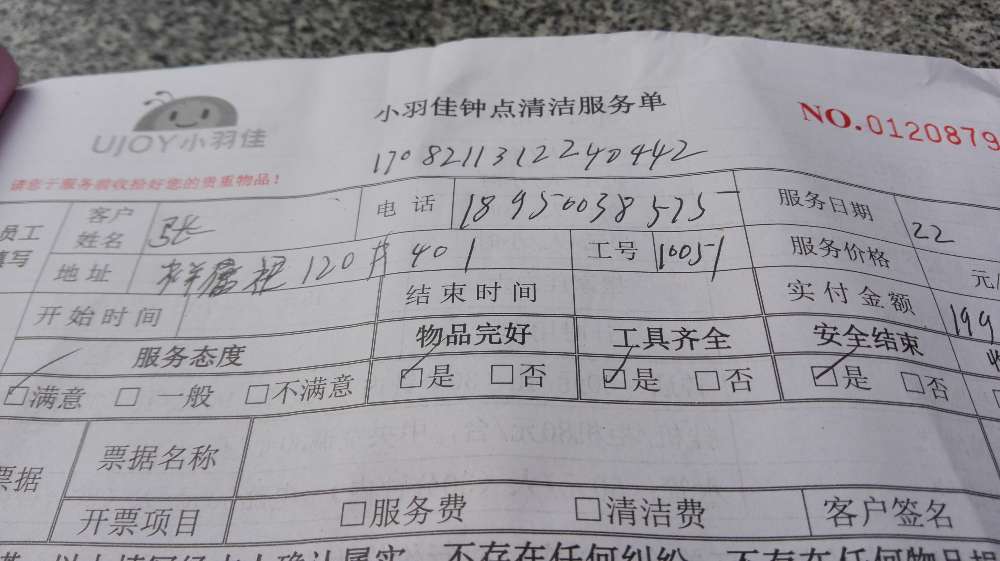 小羽佳钟点清洁服务单
NO.0120879
UJOY小羽佳
1708211312240442
请您于服务前收拾好您的贵重物品!
员工填写 客户姓名 张 电话 18950038575 服务日期 22
地址 120# 401 工号 10051 服务价格 元/
开始时间 结束时间 实付金额 199
服务态度 物品完好 工具齐全 安全结束
☑满意 □一般 □不满意 ☑是 □否 ☑是 □否 ☑是 □否
票据 票据名称
开票项目 □服务费 □清洁费 客户签名
不存在任何纠纷